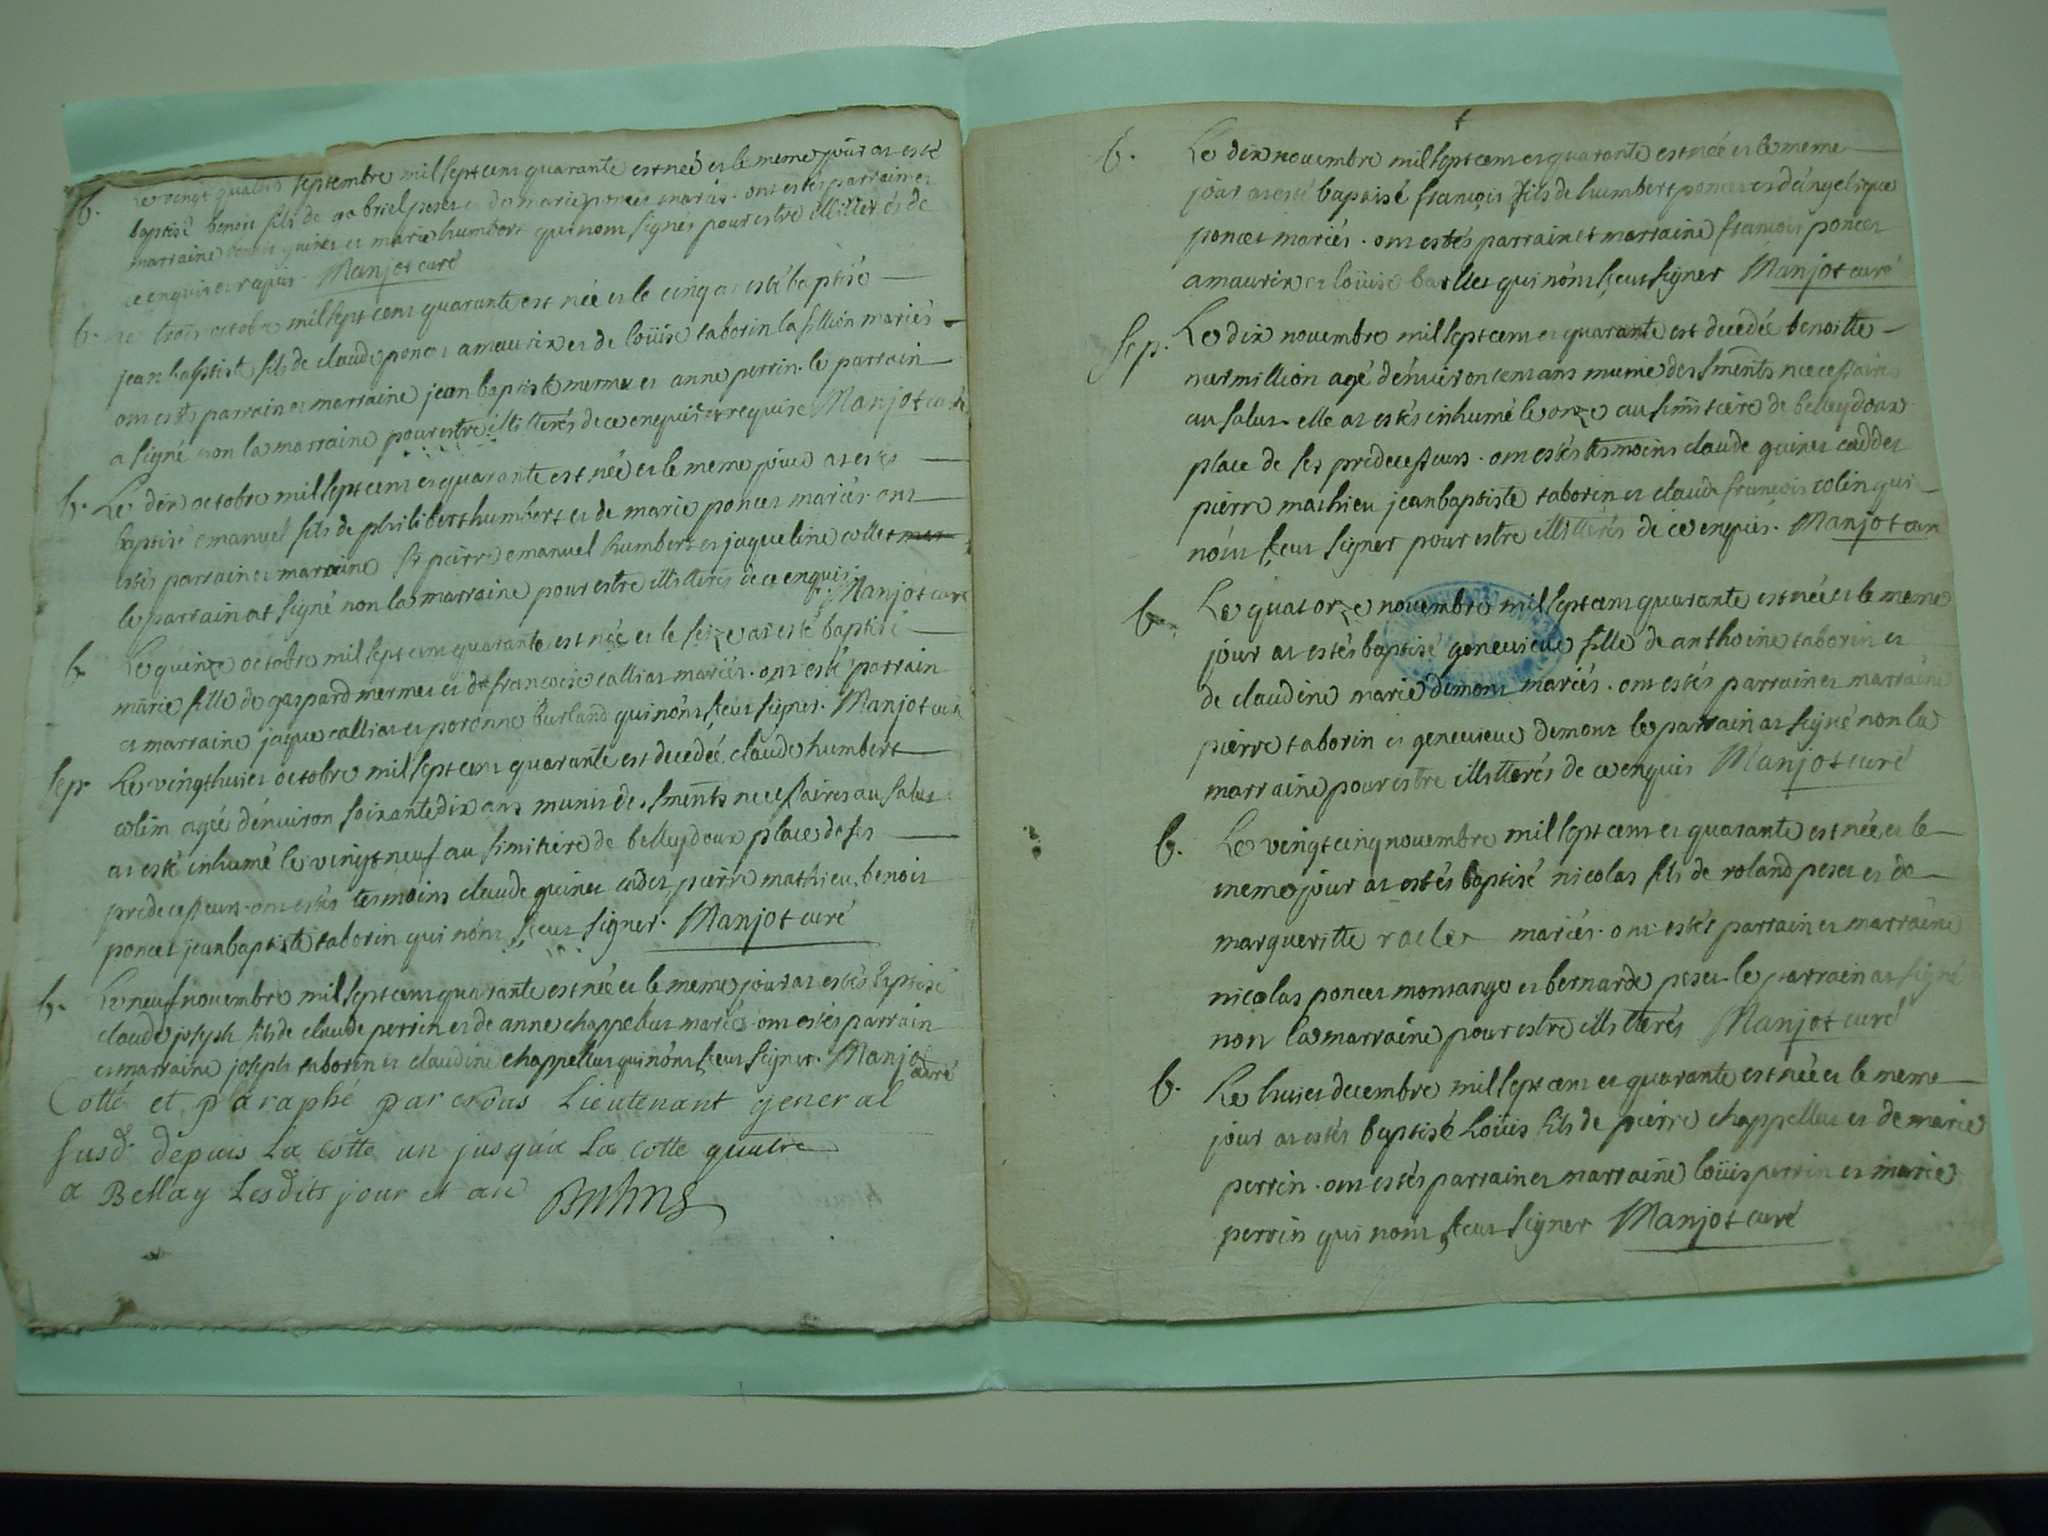 b. Le vingt quatre septembre mil sept cens quarante est née et le meme jour at esté
baptisé benois fils de gabriel peset et de marie poncet mariés. ont estes parrain et
marraine benois guinet et marie humbert qui nont signés pour estre illitterés de
ce enquis et requis. Manjot curé
b. Le trois octobre mil sept cens quarante est née et le cinq at esté baptisé
jean baptiste fils de claude poncet amaurix et de loüise taborin la fillion mariés
ont estés parrain et marraine jean baptiste mermet et anne perrin. le parrain
a signé non la marraine pour estre illitterés de ce enquise et requise Manjot curé
b. Le dix octobre mil sept cens et quarante est née et le meme jour at estés
baptisé emanuel fils de philibert humbert et de marie poncet mariés. ont
estés parrain et marraine Sr pierre emanuel humbert et jaqueline collet
le parrain at signé non la marraine pour estre illitterés de ce enquis Manjot curé
b. Le quinze octobre mil sept cens quarante est née et le seize at esté baptisé
marie fille de gaspard mermet et de francoise calliat mariés. ont esté parrain
et marraine jaque calliat et poronne burland qui nont sceut signer. Manjot curé
sep. Le vingt huict octobre mil sept cens quarante est decedée claude humbert
colin agée d'environ soixante dix ans munis des sments necessaires au salut
at esté inhumé le vingt neuf au simitiere de belleydoux place de ses
predecesseurs. ont estés tesmoins claude guinet cadet pierre mathieu, benois
poncet jean baptiste taborin qui nont sceut signer. Manjot curé
b. Le neuf novembre mil sept cens quarante est née et le meme jour at estés baptisé
claude joseph fils de claude perrin et de anne chappelluz mariés ont estés parrain
et marraine joseph taborin et claudine chappelluz qui nont sceut signer. Manjot
curé
Cotté et paraphé par nous Lieutenant general
susd. depuis La cotte un jusqu'a La cotte quatre
a Bellay Lesdits jour et an
b. Le dix novembre mil sept cens et quarante est née et le meme
jour at esté baptisé françois fils de humbert poncet et d'angelique
poncet mariés. ont estés parrain et marraine francois poncet
amaurix et loüise barllet qui nont sceut signer Manjot curé
sep. Le dix novembre mil sept cens et quarante est decedée benoitte
vuermillion agé d'environ cens ans munie des sments necessaires
au salut. elle at estés inhumé le onze au simitiere de belleydoux
place de ses predecesseurs. ont estés tesmoins claude guinet caddet
pierre mathieu jean baptiste taborin et claude françois colin qui
nont sceut signer pour estre illitterés de ce enquis. Manjot curé
b. Le quatorze novembre mil sept cens quarante est née et le meme
jour at estés baptisé genevieve fille de anthoine taborin et
de claudine marie demont mariés. ont estés parrain et marraine
pierre taborin et genevieve demont le parrain at signé non la
marraine pour estre illitterés de ce enquis Manjot curé
b. Le vingt cinq novembre mil sept cens et quarante est née et le
meme jour at estés baptisé nicolas fils de roland peset et de
margueritte raclet mariés. ont estés parrain et marraine
nicolas poncet montange et bernarde peset le parrain at signé
non la marraine pour estre illitterés Manjot curé
b. Le huict decembre mil sept cens et quarante est née et le meme
jour at estés baptisé Loüis fils de pierre chappelluz et de marie
perrin. ont estés parrain et marraine loüis perrin et marie
perrin qui nont sceut signer Manjot curé